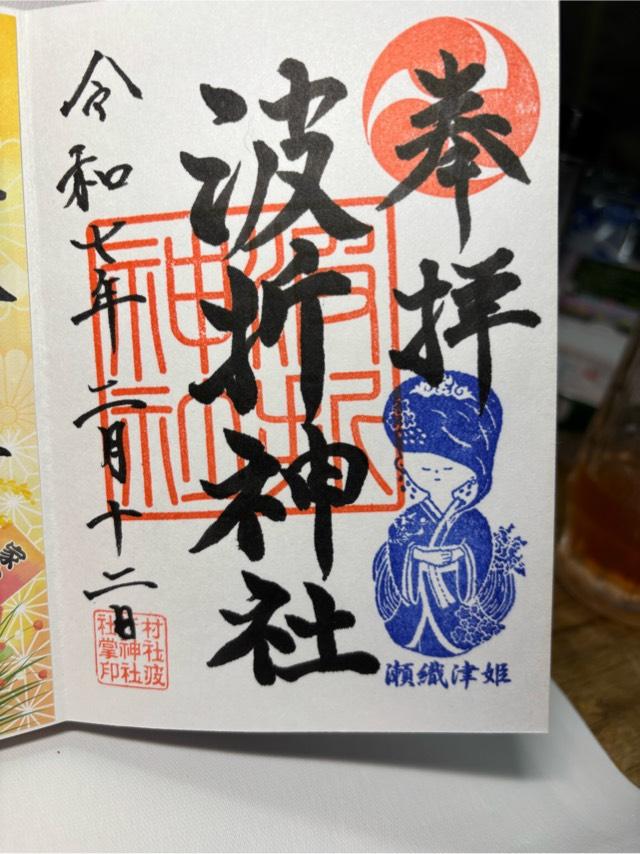 奉拝
波折神社
令和七年二月十二日
波折神社
瀬織津姫
村社波折神社社掌印
家